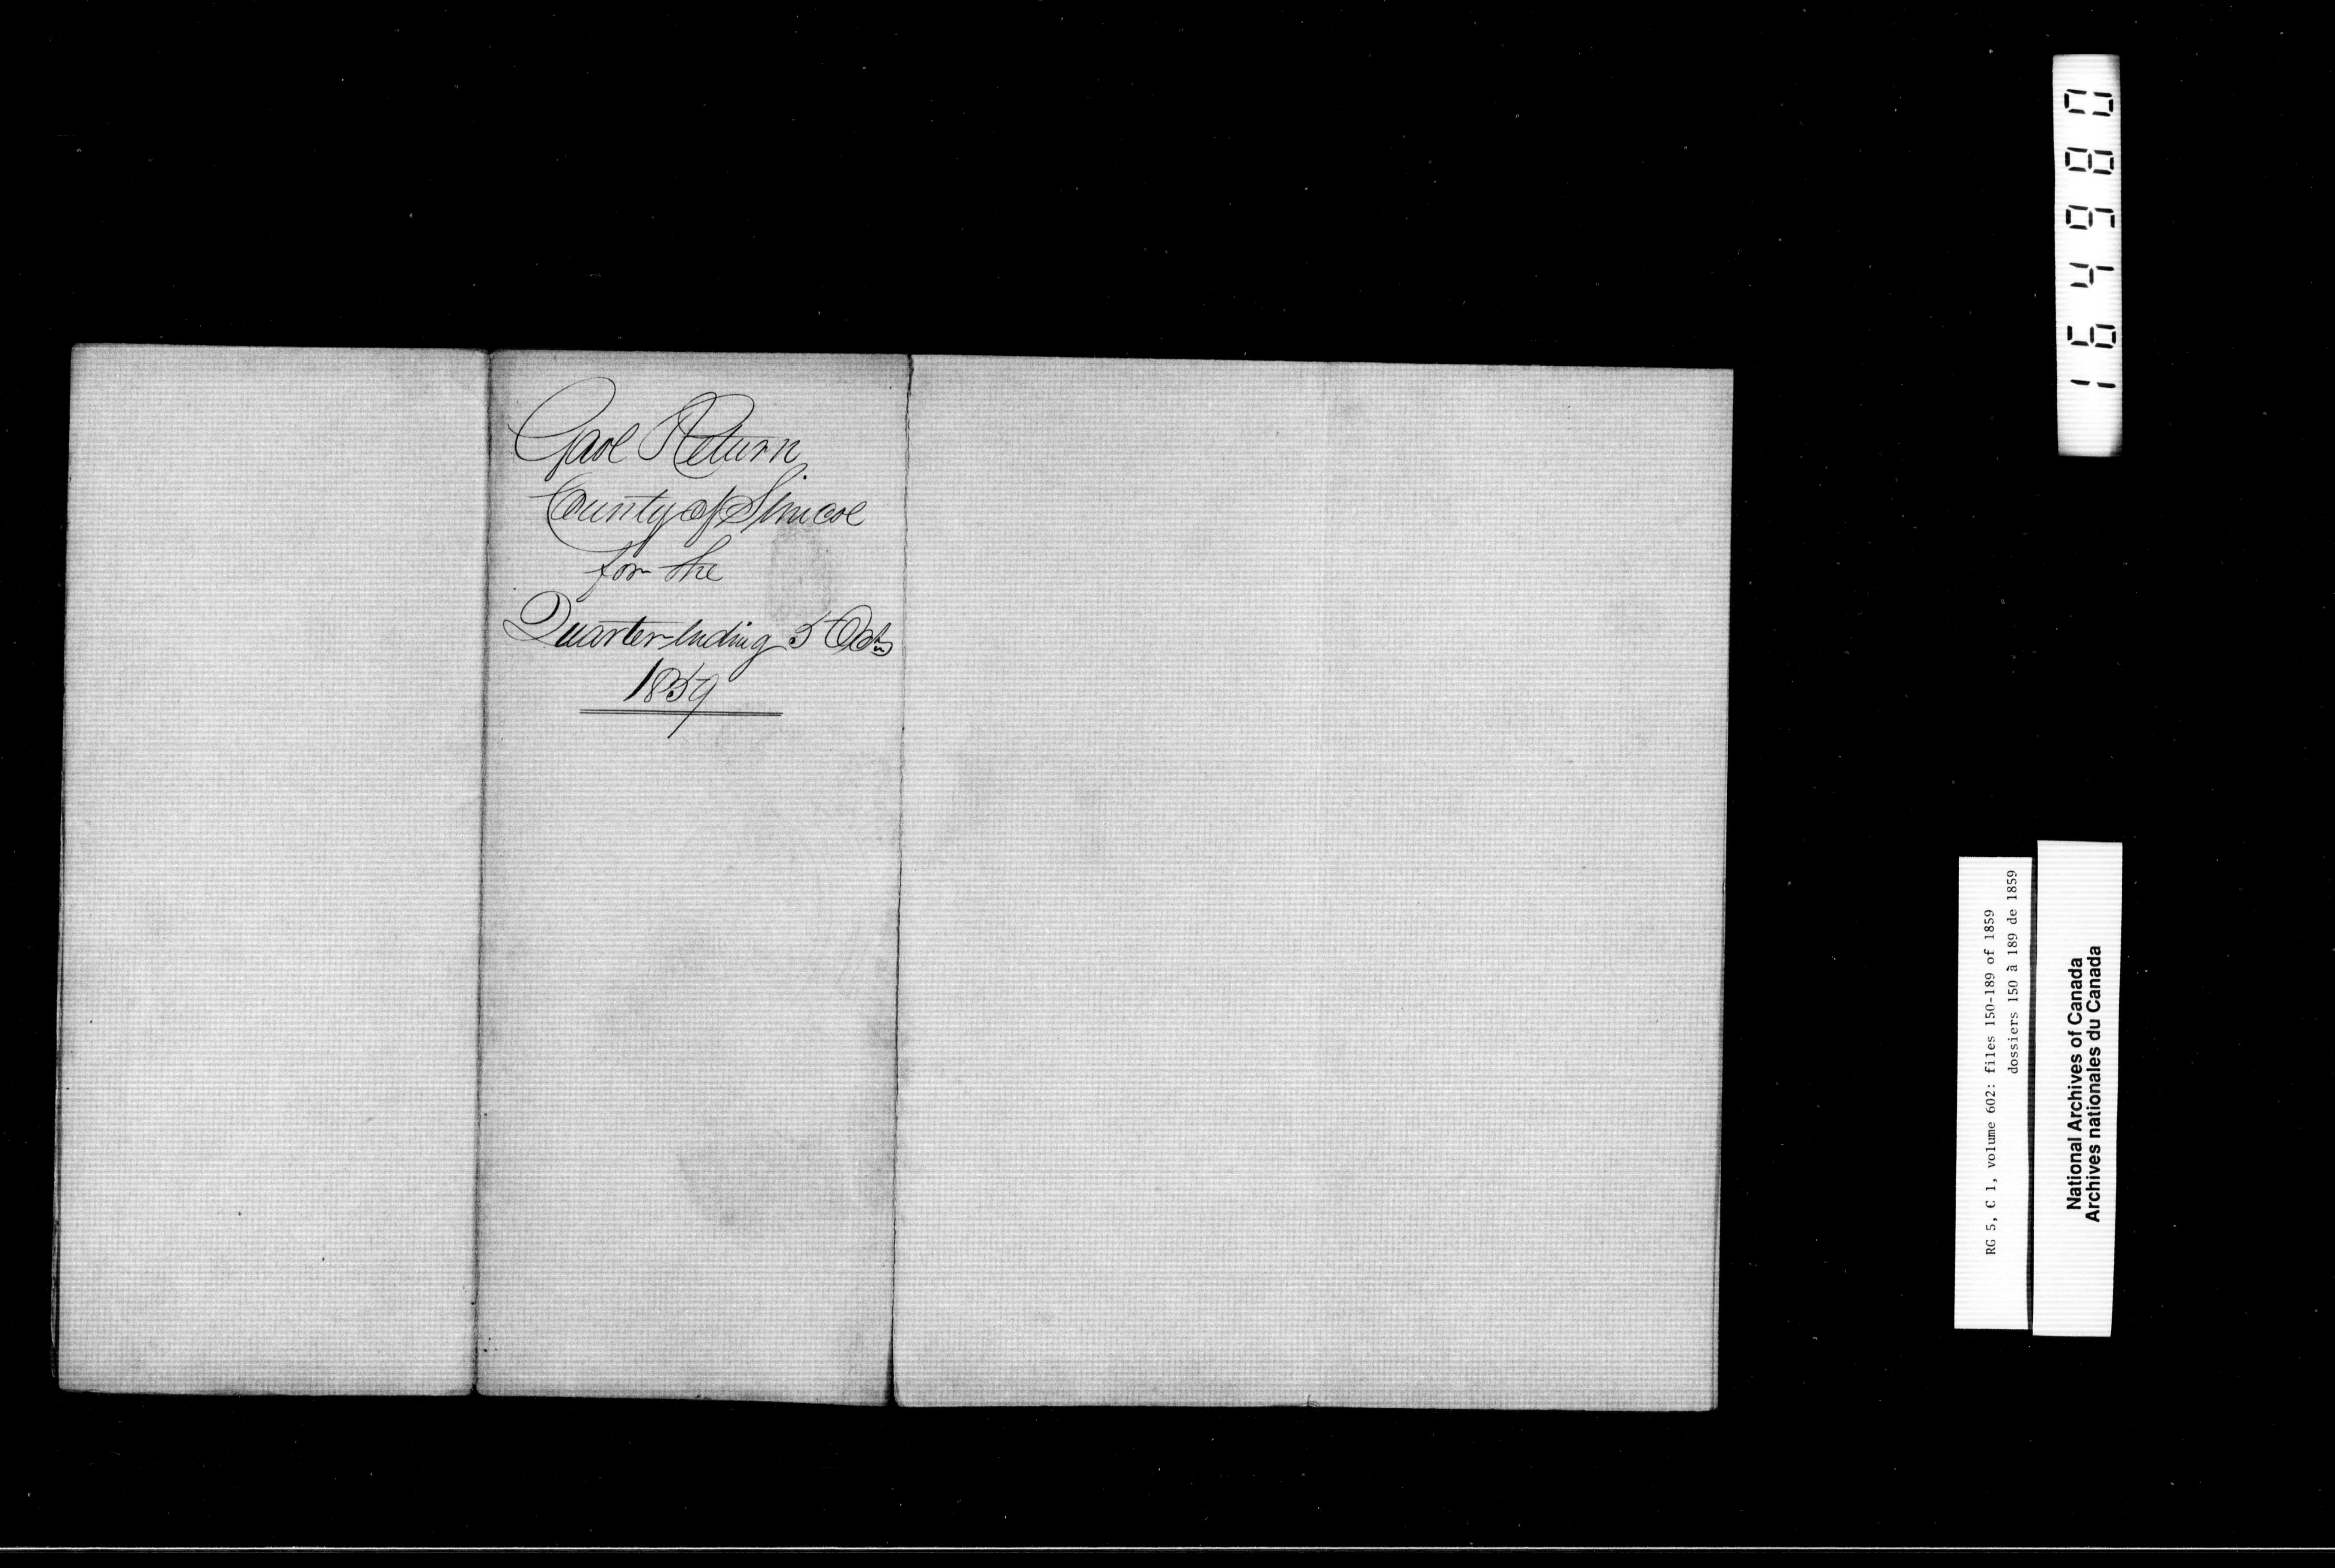 Gaol Return
County of Simcoe
for the
Quarter ending 5 Octr
1859
164980
RG 5, C 1, volume 602: files 150-189 of 1859
dossiers 150 à 189 de 1859
National Archives of Canada
Archives nationales du Canada